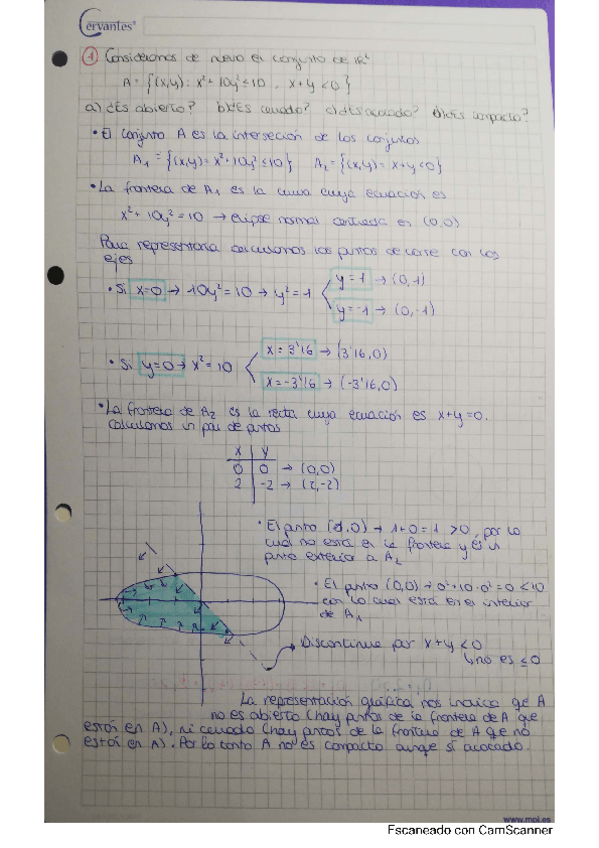 Cervantes
① Consideramos de nuevo el conjunto de ℝ²
A = {(x,y): x² + 10y² ≤ 10, x+y < 0}
a) ¿Es abierto? b) ¿Es cerrado? c) ¿Es acotado? d) ¿Es compacto?
• El conjunto A es la interseción de los conjuntos
A₁ = {(x,y) = x² + 10y² ≤ 10} A₂ = {(x,y) = x+y < 0}
• La frontera de A₁ es la curva cuya ecuación es
x² + 10y² = 10 → elipse normal centrada en (0,0)
Para representarla calculamos los puntos de corte con los
ejes
• Si x=0 → 10y² = 10 → y² = 1
y = 1 → (0,1)
y = -1 → (0,-1)
• Si y=0 → x² = 10
x = 3'16 → (3'16,0)
x = -3'16 → (-3'16,0)
• La frontera de A₂ es la recta cuya ecuación es x+y=0.
Calculamos un par de puntos
x y
0 0 → (0,0)
2 -2 → (2,-2)
• El punto (1,0) → 1+0 = 1 > 0, por lo
cual no está en la frontera y es un
punto exterior a A₂
• El punto (0,0) → 0² + 10·0² = 0 < 10
con lo cual está en el interior
de A₁
Discontinua por x+y < 0
↳ no es ≤ 0
La representación gráfica nos indica que A
no es abierto (hay puntos de la frontera de A que
están en A), ni cerrado (hay puntos de la frontera de A que no
están en A). Por lo tanto A no es compacto aunque sí acocado.
www.mpi.es
Escaneado con CamScanner